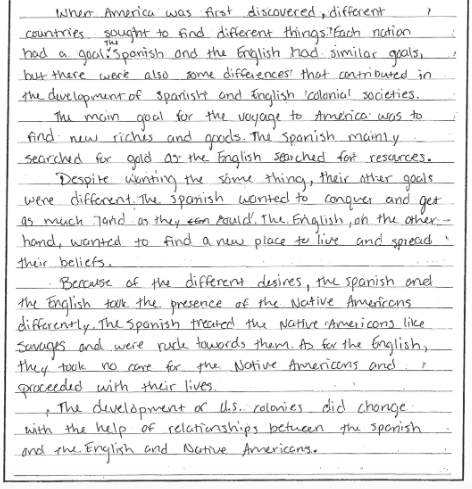 When America was first discovered, different
countries sought to find different things. Each nation
had a goal. The Spanish and the English had similar goals,
but there were also some differences that contributed in
the development of Spanish and English colonial societies.
The main goal for the voyage to America was to
find new riches and goods. The Spanish mainly
searched for gold as the English searched for resources.
Despite wanting the same thing, their other goals
were different. The Spanish wanted to conquer and get
as much land as they could. The English, on the other-
hand, wanted to find a new place to live and spread
their beliefs.
Because of the different desires, the Spanish and
the English took the presence of the Native Americans
differently. The Spanish treated the Native Americans like
savages and were rude towards them. As for the English,
they took no care for the Native Americans and
proceeded with their lives.
The development of U.S. colonies did change
with the help of relationships between the Spanish
and the English and Native Americans.